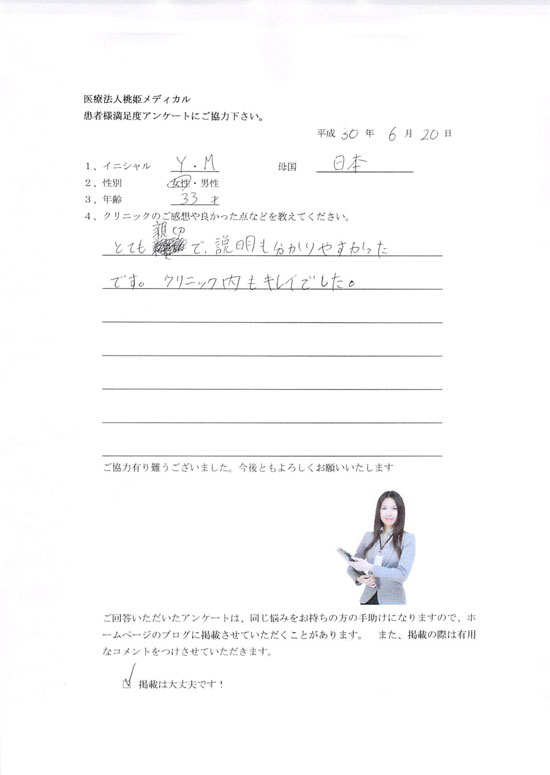 医療法人桃姫メディカル
患者様満足度アンケートにご協力下さい。
平成 30 年 6 月 20 日
1、イニシャル Y・M 母国 日本
2、性別 女性・男性
3、年齢 33 才
4、クリニックのご感想や良かった点などを教えてください。
とても親切で、説明も分かりやすかった
です。クリニック内もキレイでした。
ご協力有り難うございました。今後ともよろしくお願いいたします
ご回答いただいたアンケートは、同じ悩みをお持ちの方の手助けになりますので、ホ
ームページのブログに掲載させていただくことがあります。 また、掲載の際は有用
なコメントをつけさせていただきます。
☑ 掲載は大丈夫です！